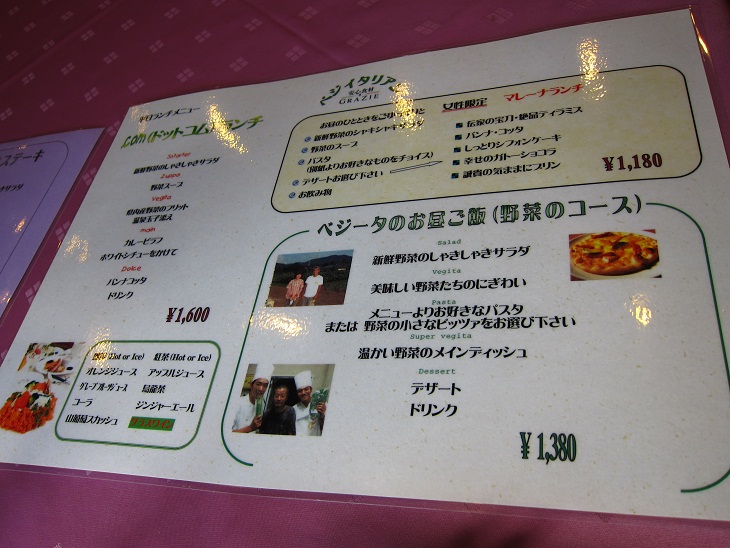 ステーキ
サラダ
平日ランチメニュー
.com(ドットコム)ランチ
新鮮野菜のしゃきしゃきサラダ
Zuppa
野菜スープ
Vegita
県内産野菜のフリット
温泉玉子添え
main
カレーピラフ
ホワイトシチューをかけて
Dolce
パンナコッタ
ドリンク
¥1,600
(Hot or Ice) 紅茶(Hot or Ice)
オレンジジュース アップルジュース
グレープフルーツジュース 烏龍茶
コーラ ジンジャーエール
山葡萄スカッシュ グラスワイン
イタリア
安心食材
GRAZIE
女性限定 マレーナランチ
お昼のひとときを
新鮮野菜のシャキシャキ
野菜のスープ
パスタ
(別紙よりお好きなものをチョイス)
デザートお選び下さい
お飲み物
伝家の宝刀・絶品ティラミス
パンナ・コッタ
しっとりシフォンケーキ
幸せのガトーショコラ
誠貴の気ままにプリン
¥1,180
ベジータのお昼ご飯(野菜のコース)
Salad
新鮮野菜のしゃきしゃきサラダ
Vegita
美味しい野菜たちのにぎわい
Pasta
メニューよりお好きなパスタ
または 野菜の小さなピッツァをお選び下さい
Super vegita
温かい野菜のメインディッシュ
Dessert
デザート
ドリンク
¥1,380